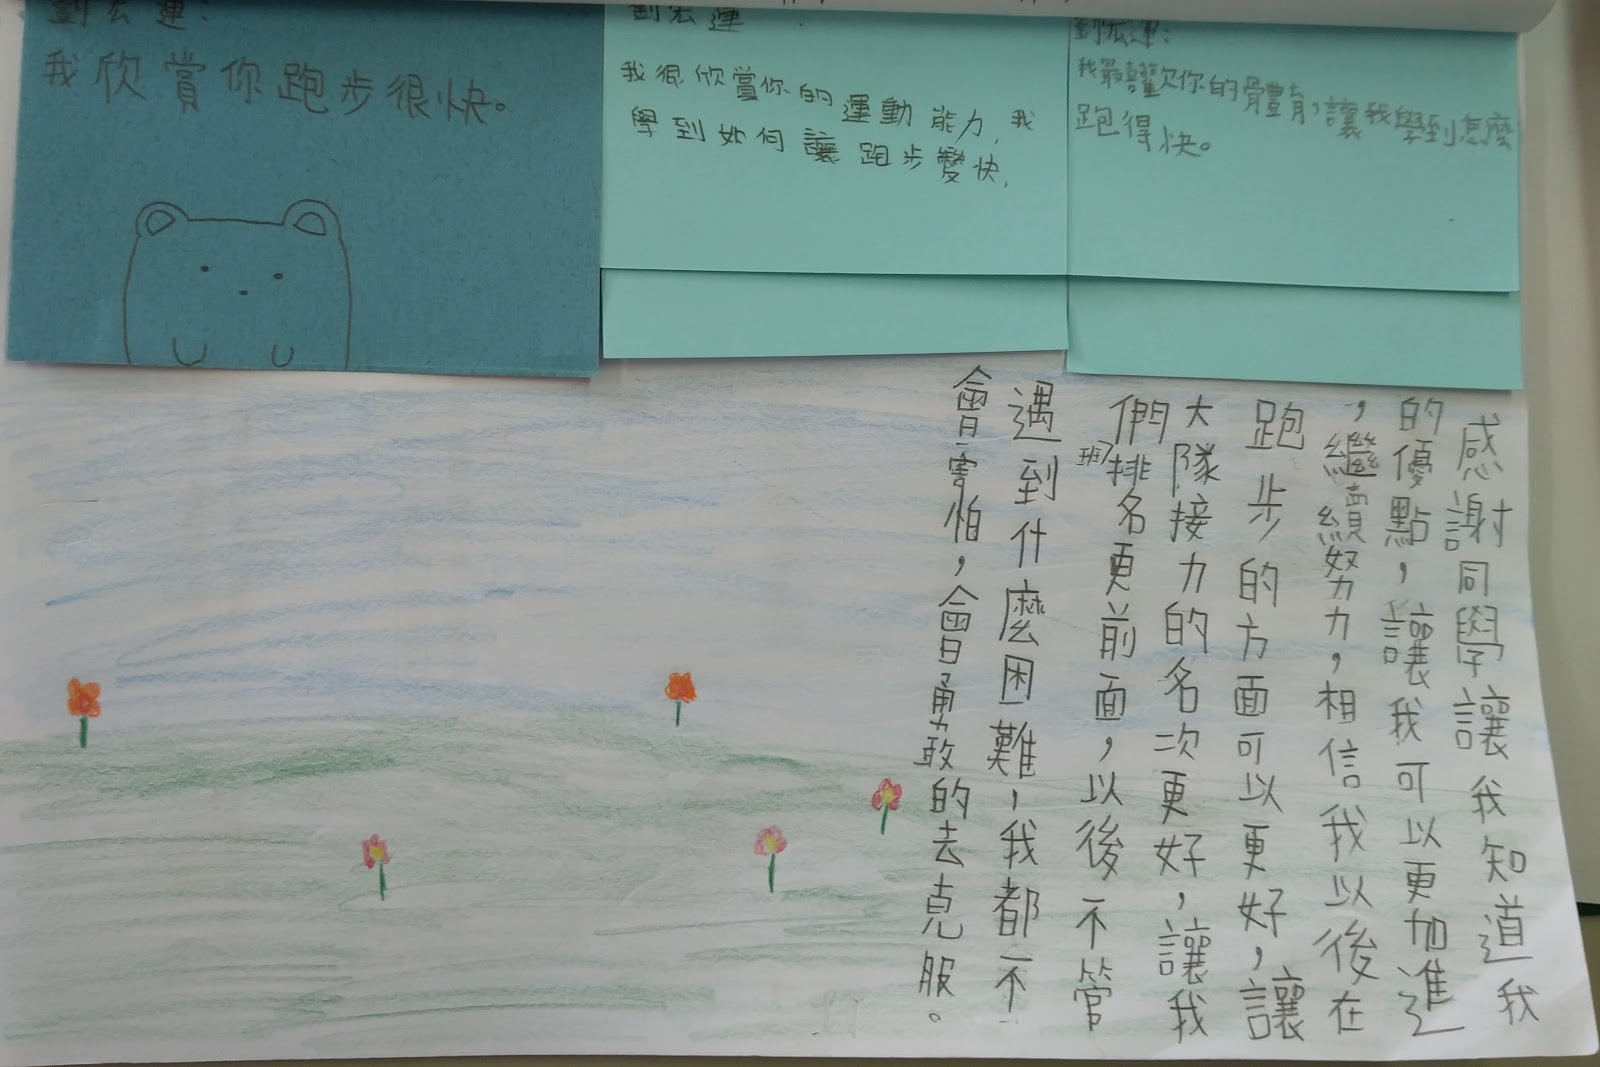 劉宏運:
我欣賞你跑步很快。
劉宏運:
我很欣賞你的運動能力,我
學到如何讓跑步變快,
劉宏運:
我最讙欠你的體育,讓我學到怎麼
跑得快。
感謝同學讓我知道我
的優點,讓我可以更加進
,繼續努力,相信我以後在
跑步的方面可以更好,讓
大隊接力的名次更好,讓我
們班排名更前面,以後不管
遇到什麼困難,我都不
會害怕,會勇敢的去克服。